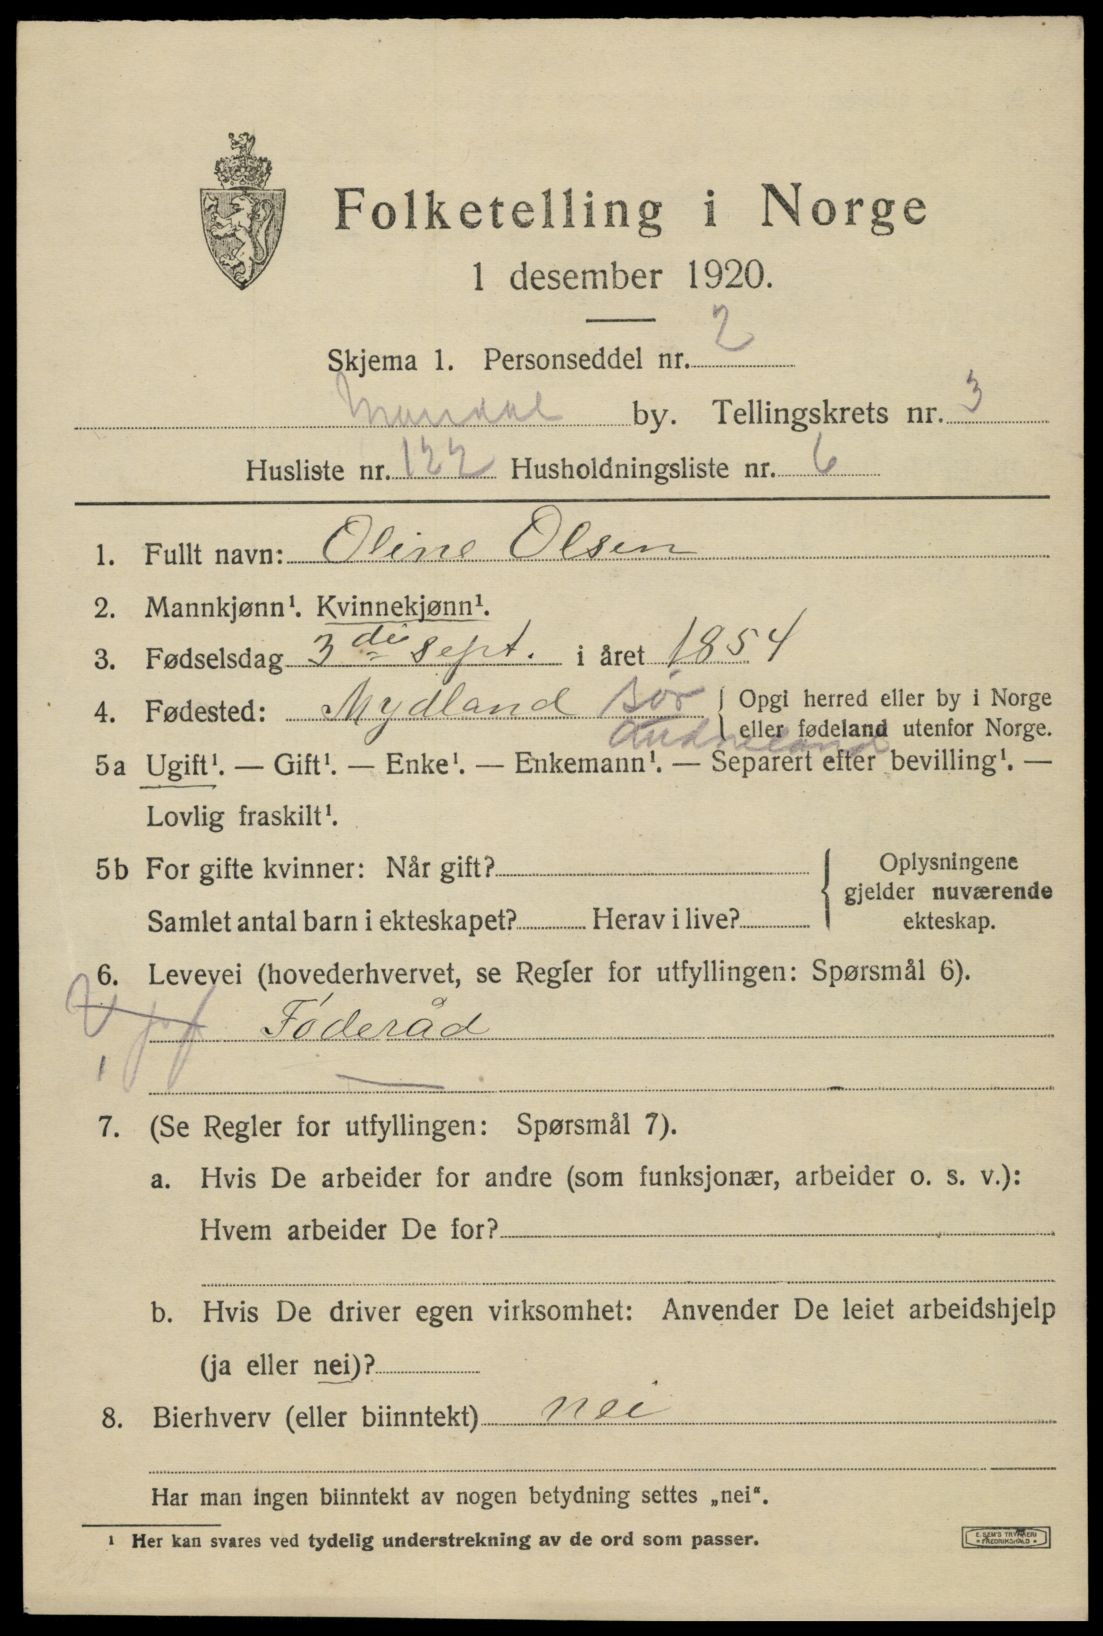 Folketelling i Norge
1 desember 1920.
Skjema 1. Personseddel nr. 2
Mandal by. Tellingskrets nr. 3
Husliste nr. 122 Husholdningsliste nr. 6
1. Fullt navn: Oline Olsen
2. Mannkjønn¹. Kvinnekjønn¹.
3. Fødselsdag 3 die sept. i året 1854
4. Fødested: Mydland Sør Audneland { Opgi herred eller by i Norge
eller fødeland utenfor Norge.
5a Ugift¹. — Gift¹. — Enke¹. — Enkemann¹. — Separert efter bevilling¹. —
Lovlig fraskilt¹.
5b For gifte kvinner: Når gift? { Oplysningene
gjelder nuværende
Samlet antal barn i ekteskapet? Herav i live? ekteskap.
6. Levevei (hovederhvervet, se Regler for utfyllingen: Spørsmål 6).
Føderåd
7. (Se Regler for utfyllingen: Spørsmål 7).
a. Hvis De arbeider for andre (som funksjonær, arbeider o. s. v.):
Hvem arbeider De for?
b. Hvis De driver egen virksomhet: Anvender De leiet arbeidshjelp
(ja eller nei)?
8. Bierhverv (eller biinntekt) nei
Har man ingen biinntekt av nogen betydning settes „nei".
¹ Her kan svares ved tydelig understrekning av de ord som passer.
E. SEM'S TRYKKERI
* FREDRIKSHALD *